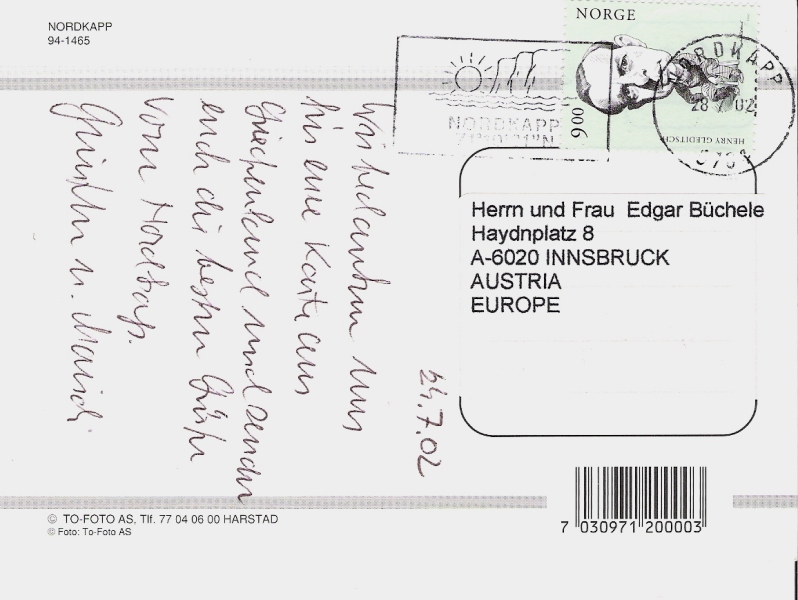 NORDKAPP
94-1465
NORGE
9.00
HENRY GLEDITSCH
NORDKAPP
71°10'21"N
NORDKAPP
28 7 02
24.7.02
Wir bedanken uns
für eure Karte aus
Griechenland und senden
euch die besten Grüße
vom Nordkap.
Günther u. Maridi
Herrn und Frau Edgar Büchele
Haydnplatz 8
A-6020 INNSBRUCK
AUSTRIA
EUROPE
© TO-FOTO AS, Tlf. 77 04 06 00 HARSTAD
© Foto: To-Foto AS
7 030971 200003